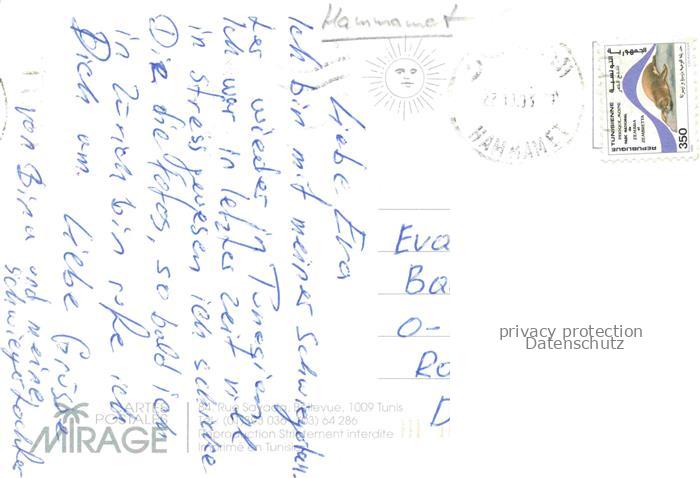 Hammamet
Liebe Eva
Ich bin mit meiner Schwiegertoch-
ter wieder in Tunesien
Ich war in letzter Zeit viel
in Stress gewesen ich schicke
Dir die Fotos, so bald ich
in Zürich bin rufe ich
Dich an. Liebe Grüsse
von Bina und meine
Schwiegertochter
Eva
Ba
O-
Ro
D
HAMMAMET
الجمهورية التونسية
REPUBLIQUE TUNISIENNE
PHOQUE MOINE
PARC NATIONAL
ZEMBRA
et
ZEMBRETTA
350
privacy protection
Datenschutz
CARTES
POSTALES
MIRAGE
Rue Savana, Bellevue, 1009 Tunis
64 286
Reproduction Strictement interdite
Imprimé en Tunisie